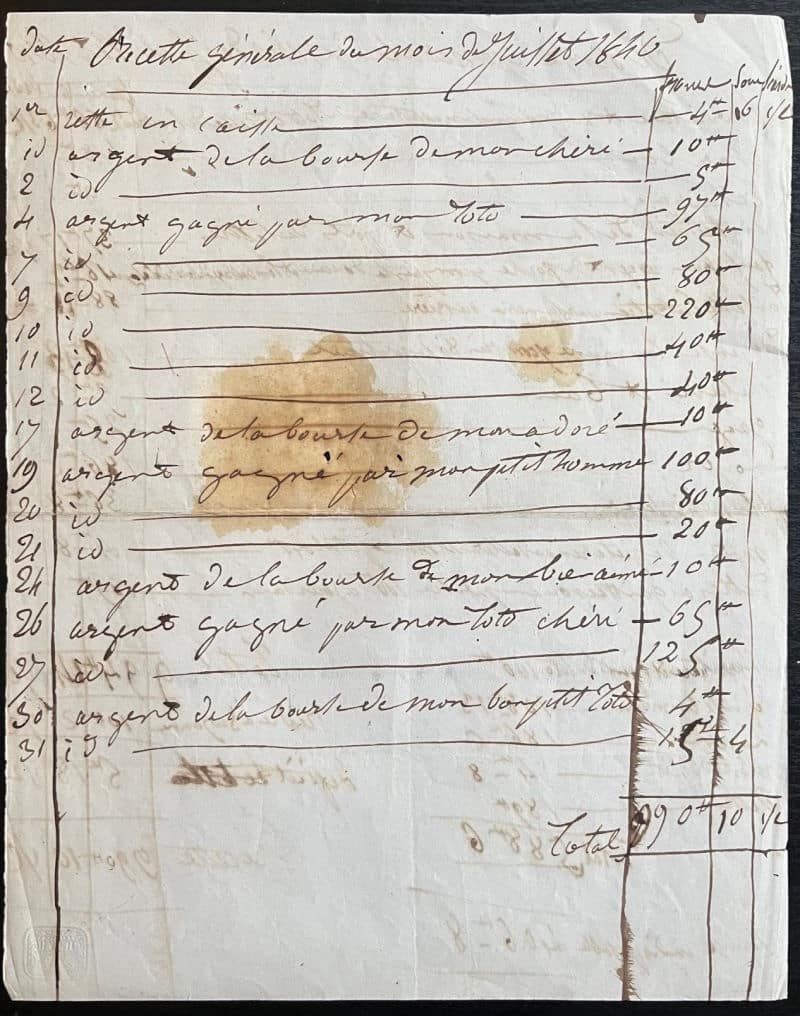 date Recette générale du mois de Juillet 1840
francs sous liards
1er reste en caisse 4# 6 1/2
id argent de la bourse de mon chéri 10#
2 id 5#
4 argent gagné par mon Toto 97#
7 id 65#
9 id 80#
10 id 220#
11 id 40#
12 id 40#
17 argent de la bourse de mon adoré 10#
19 argent gagné par mon ptit homme 100#
20 id 80#
21 id 20#
24 argent de la bourse de mon bien aimé 10#
26 argent gagné par mon Toto chéri 65#
27 id 125#
30 argent de la bourse de mon bon ptit Toto 4#
31 id 15# 4
Total 990# 10 1/2